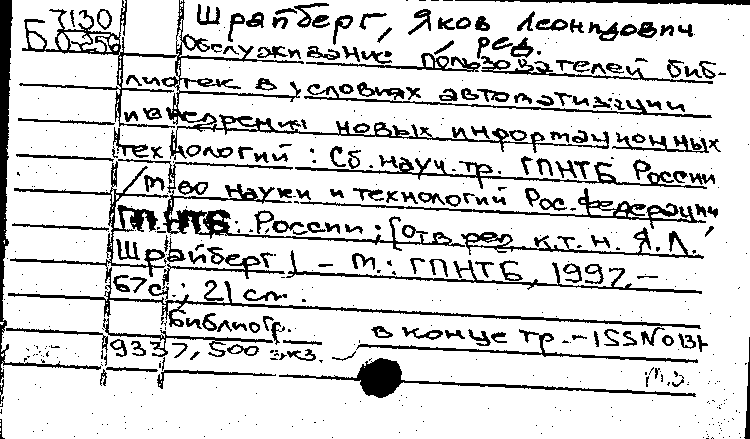 7130 Шрайберг, Яков Леонидович
Б О-256 ред.
Обслуживание пользователей биб-
лиотек в условиях автоматизации
и внедрения новых информационных
технологий : Сб. науч. тр. ГПНТБ России
/ М-во науки и технологий Рос. Федерации,
ГПНТБ России; [отв. ред. к.т.н. Я.Л.
Шрайберг] – М.: ГПНТБ, 1997. –
67с.; 21 см.
Библиогр. в конце тр. – ISSN 0131
9337, 500 экз.
м.э.